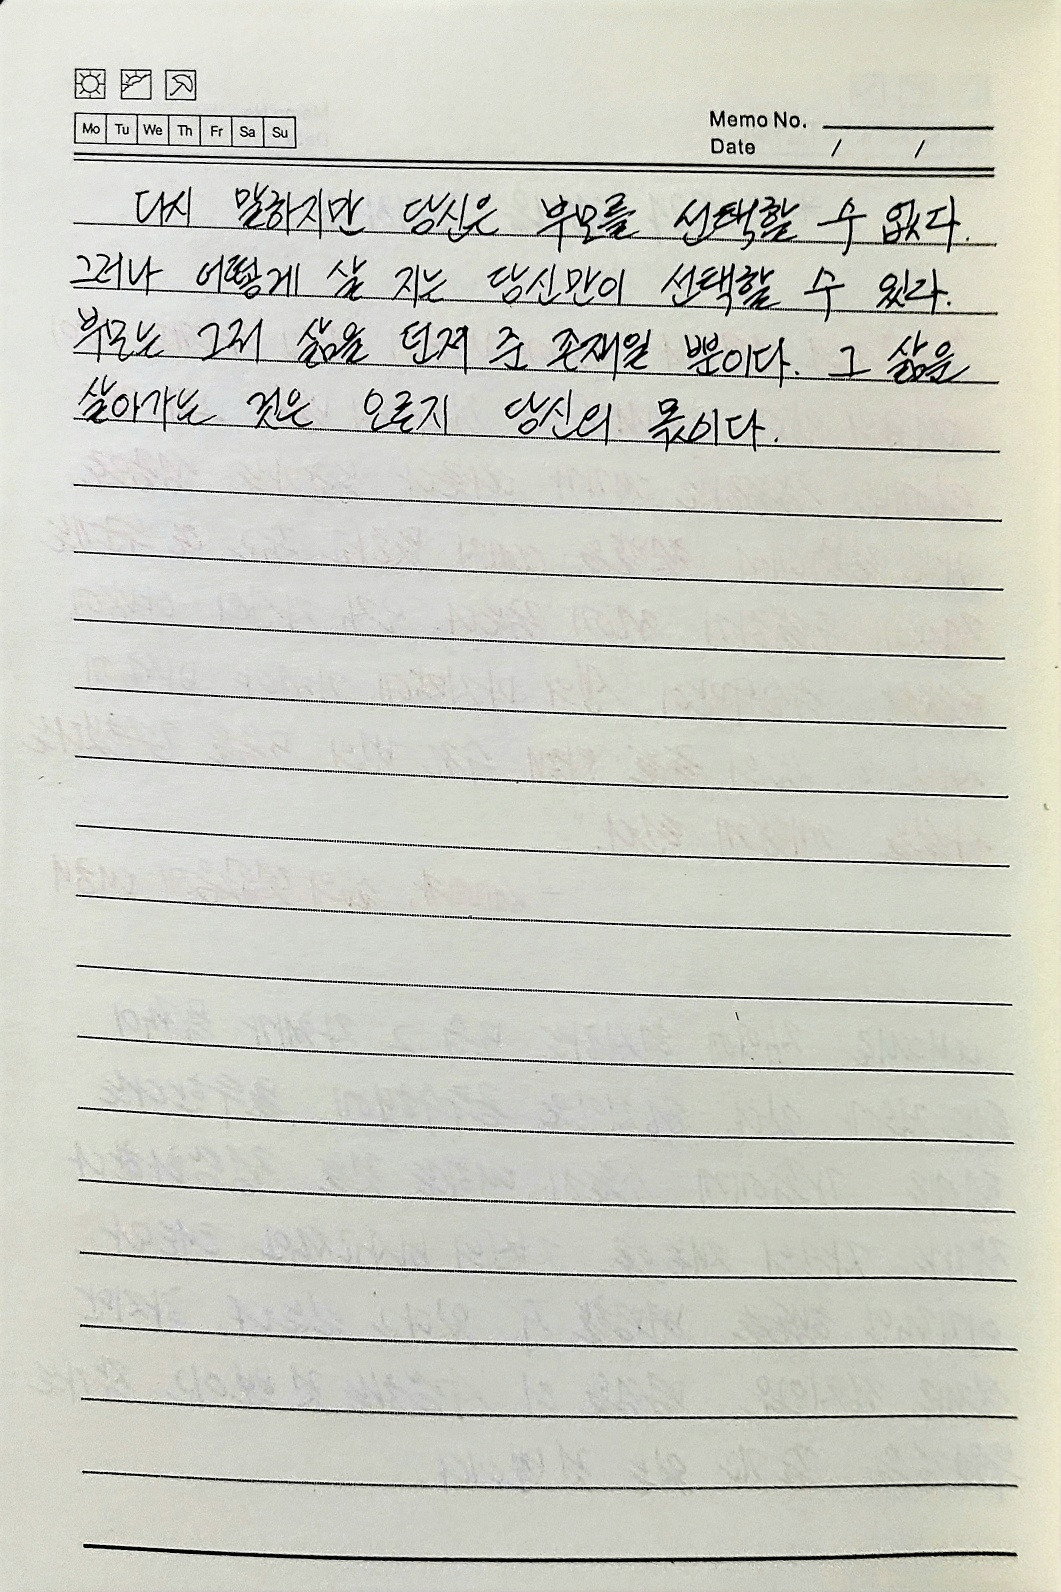 Mo Tu We Th Fr Sa Su
Memo No.
Date / /
다시 말하지만 당신은 부모를 선택할 수 없다.
그러나 어떻게 살 지는 당신만이 선택할 수 있다.
부모는 그저 삶을 던져 준 존재일 뿐이다. 그 삶을
살아가는 것은 오로지 당신의 몫이다.